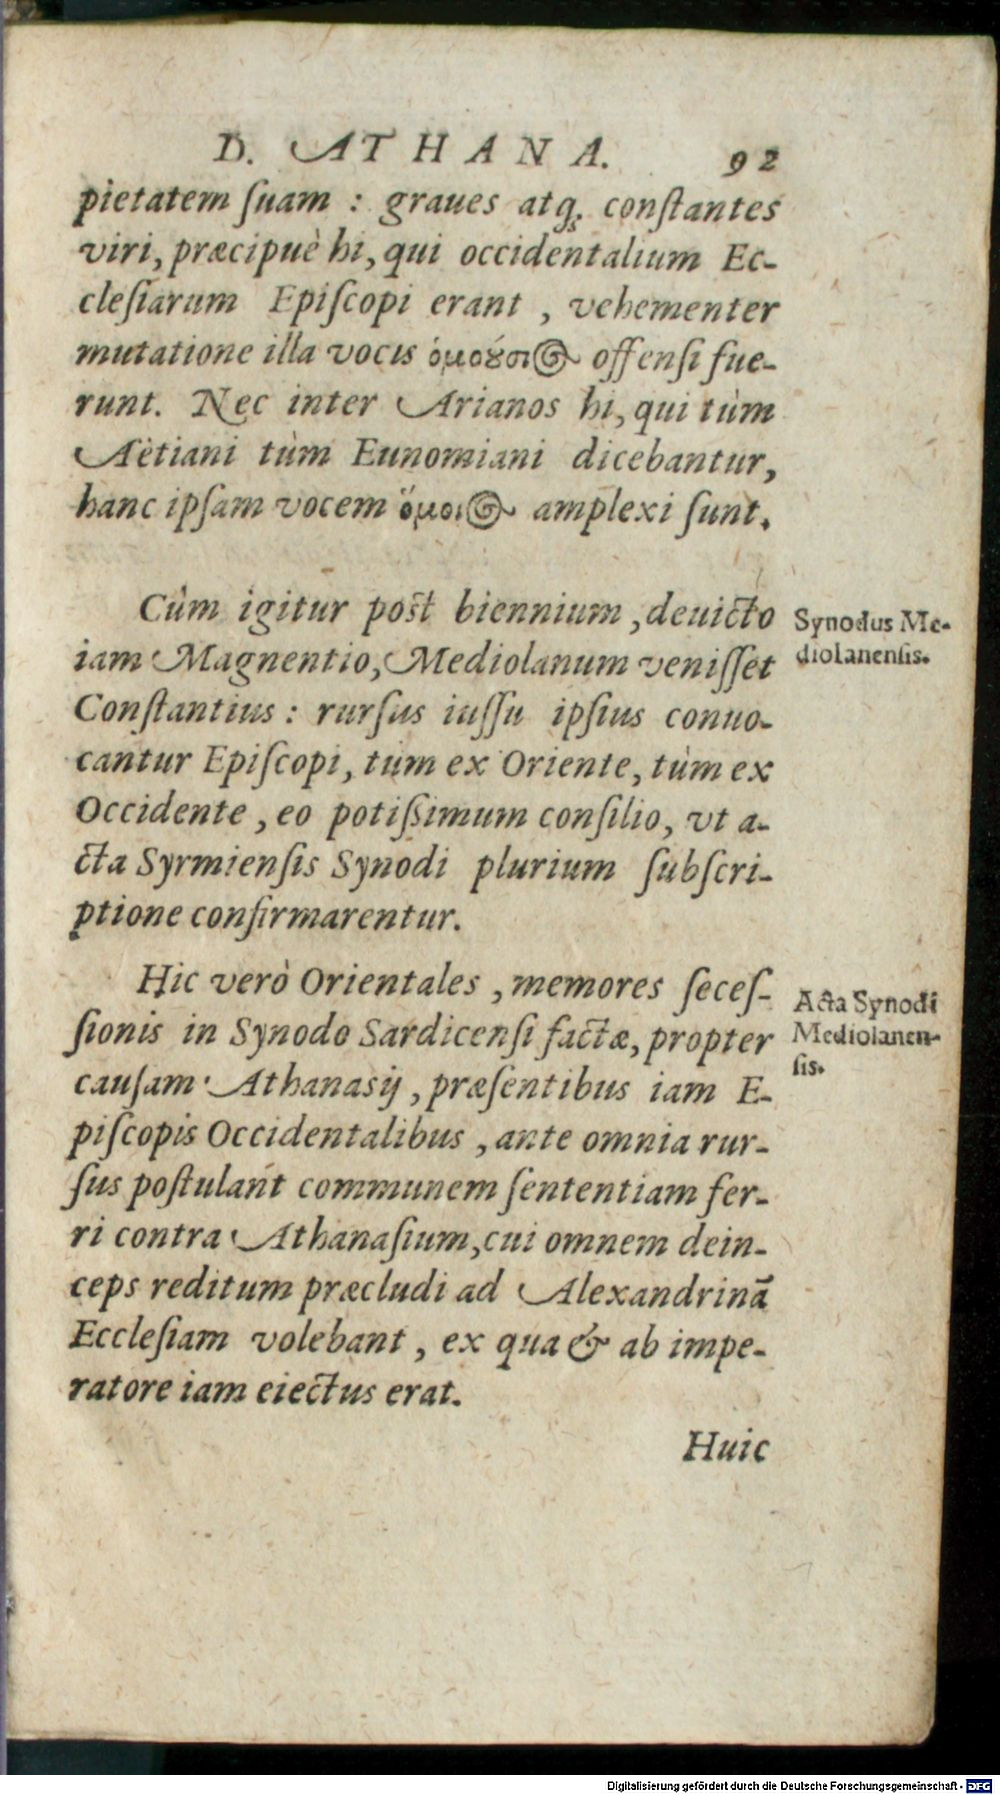 D. ATHANA. 92
pietatem ſuam : graues atq; conſtantes
viri, præcipuè hi, qui occidentalium Ec-
cleſiarum Epiſcopi erant , vehementer
mutatione illa vocis ὁμοούσι@ offenſi fue-
runt. Nec inter Arianos hi, qui tùm
Aëtiani tùm Eunomiani dicebantur,
hanc ipſam vocem ὅμοι@ amplexi ſunt.
Cùm igitur poſt biennium , deuicto
iam Magnentio, Mediolanum veniſſet
Conſtantius : rurſus iuſſu ipſius conuo-
cantur Epiſcopi, tum ex Oriente, tùm ex
Occidente , eo potiſſimum conſilio, vt a-
cta Syrmienſis Synodi plurium ſubſcri-
ptione confirmarentur.
Synodus Me-
diolanenſis.
Hic verò Orientales , memores ſeceſ-
ſionis in Synodo Sardicenſi factæ, propter
cauſam Athanasij , præſentibus iam E-
piſcopis Occidentalibus , ante omnia rur-
ſus poſtulant communem ſententiam fer-
ri contra Athanaſium, cui omnem dein-
ceps reditum præcludi ad Alexandrinã
Eccleſiam volebant , ex qua & ab impe-
ratore iam eiectus erat.
Acta Synodi
Mediolanen-
ſis.
Huic
Digitalisierung gefördert durch die Deutsche Forschungsgemeinschaft - DFG